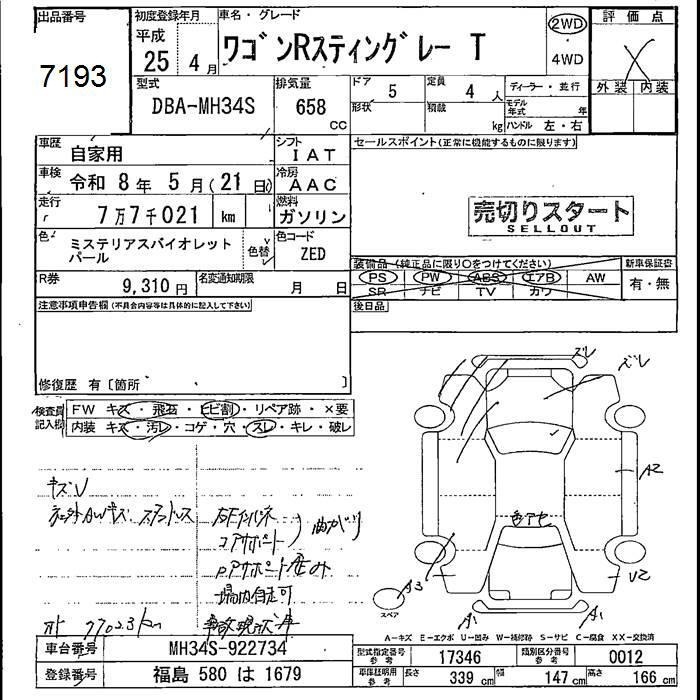 出品番号
7193
初度登録年月
平成
25 4月
車名・グレード
ワゴンRスティングレー T
2WD
4WD
評価点
X
外装 内装
型式
DBA-MH34S
排気量
658
CC
ドア
5
形状
定員
4 人
積載
kg
ディーラー・並行
モデル年式 年
ハンドル 左・右
車歴
自家用
シフト
IAT
車検
令和 8年 5月(21日)
冷房
AAC
走行
7万7千021 km
燃料
ガソリン
色
ミステリアスバイオレット
パール
色替
色コード
ZED
R券
9,310円
名変通知期限
月 日
セールスポイント(正常に機能するものに限ります)
売切りスタート
SELLOUT
装備品(純正品に限り○をつけてください)
PS PW ABS エアB AW
SR ナビ TV カワ
新車保証書
有・無
後日品
注意事項申告欄(不具合内容等は具体的に記入して下さい)
修復歴 有〔箇所 〕
検査員記入欄
FW キズ・飛石・ヒビ割・リペア跡・×要
内装 キズ・汚レ・コゲ・穴・スレ・キレ・破レ
キズU
コアサポート
曲がり
場内自走可
77023km
ズレ
ズレ
A2
U2
A3
スペア
A1
A1
A-キズ E-エクボ U-凹み W-補修跡 S-サビ C-腐食 XX-交換済
車台番号
MH34S-922734
登録番号
福島 580 は 1679
型式指定番号
参考
17346
類別区分番号
参考
0012
車庫証明用
参考
長さ 339 cm
幅 147 cm
高さ 166 cm